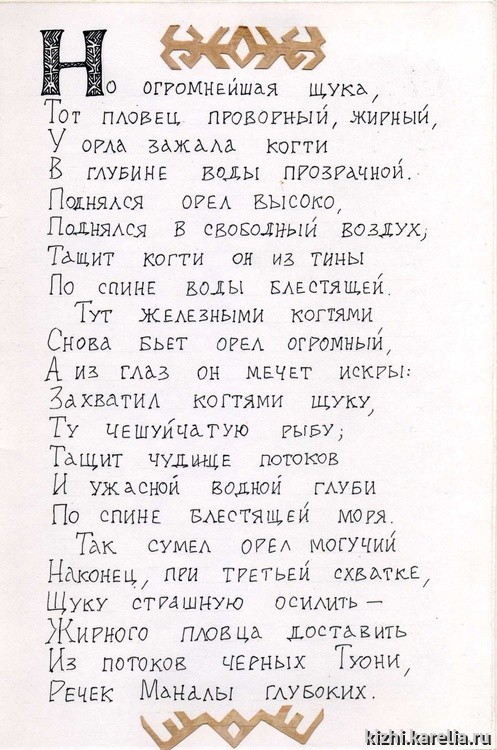 Но огромнейшая щука,
Тот пловец проворный, жирный,
У орла зажала когти
В глубине воды прозрачной.
Поднялся орел высоко,
Поднялся в свободный воздух;
Тащит когти он из тины
По спине воды блестящей.
Тут железными когтями
Снова бьет орел огромный,
А из глаз он мечет искры:
Захватил когтями щуку,
Ту чешуйчатую рыбу;
Тащит чудище потоков
И ужасной водной глуби
По спине блестящей моря.
Так сумел орел могучий
Наконец, при третьей схватке,
Щуку страшную осилить —
Жирного пловца доставить
Из потоков черных Туони,
Речек Маналы глубоких.
kizhi.karelia.ru